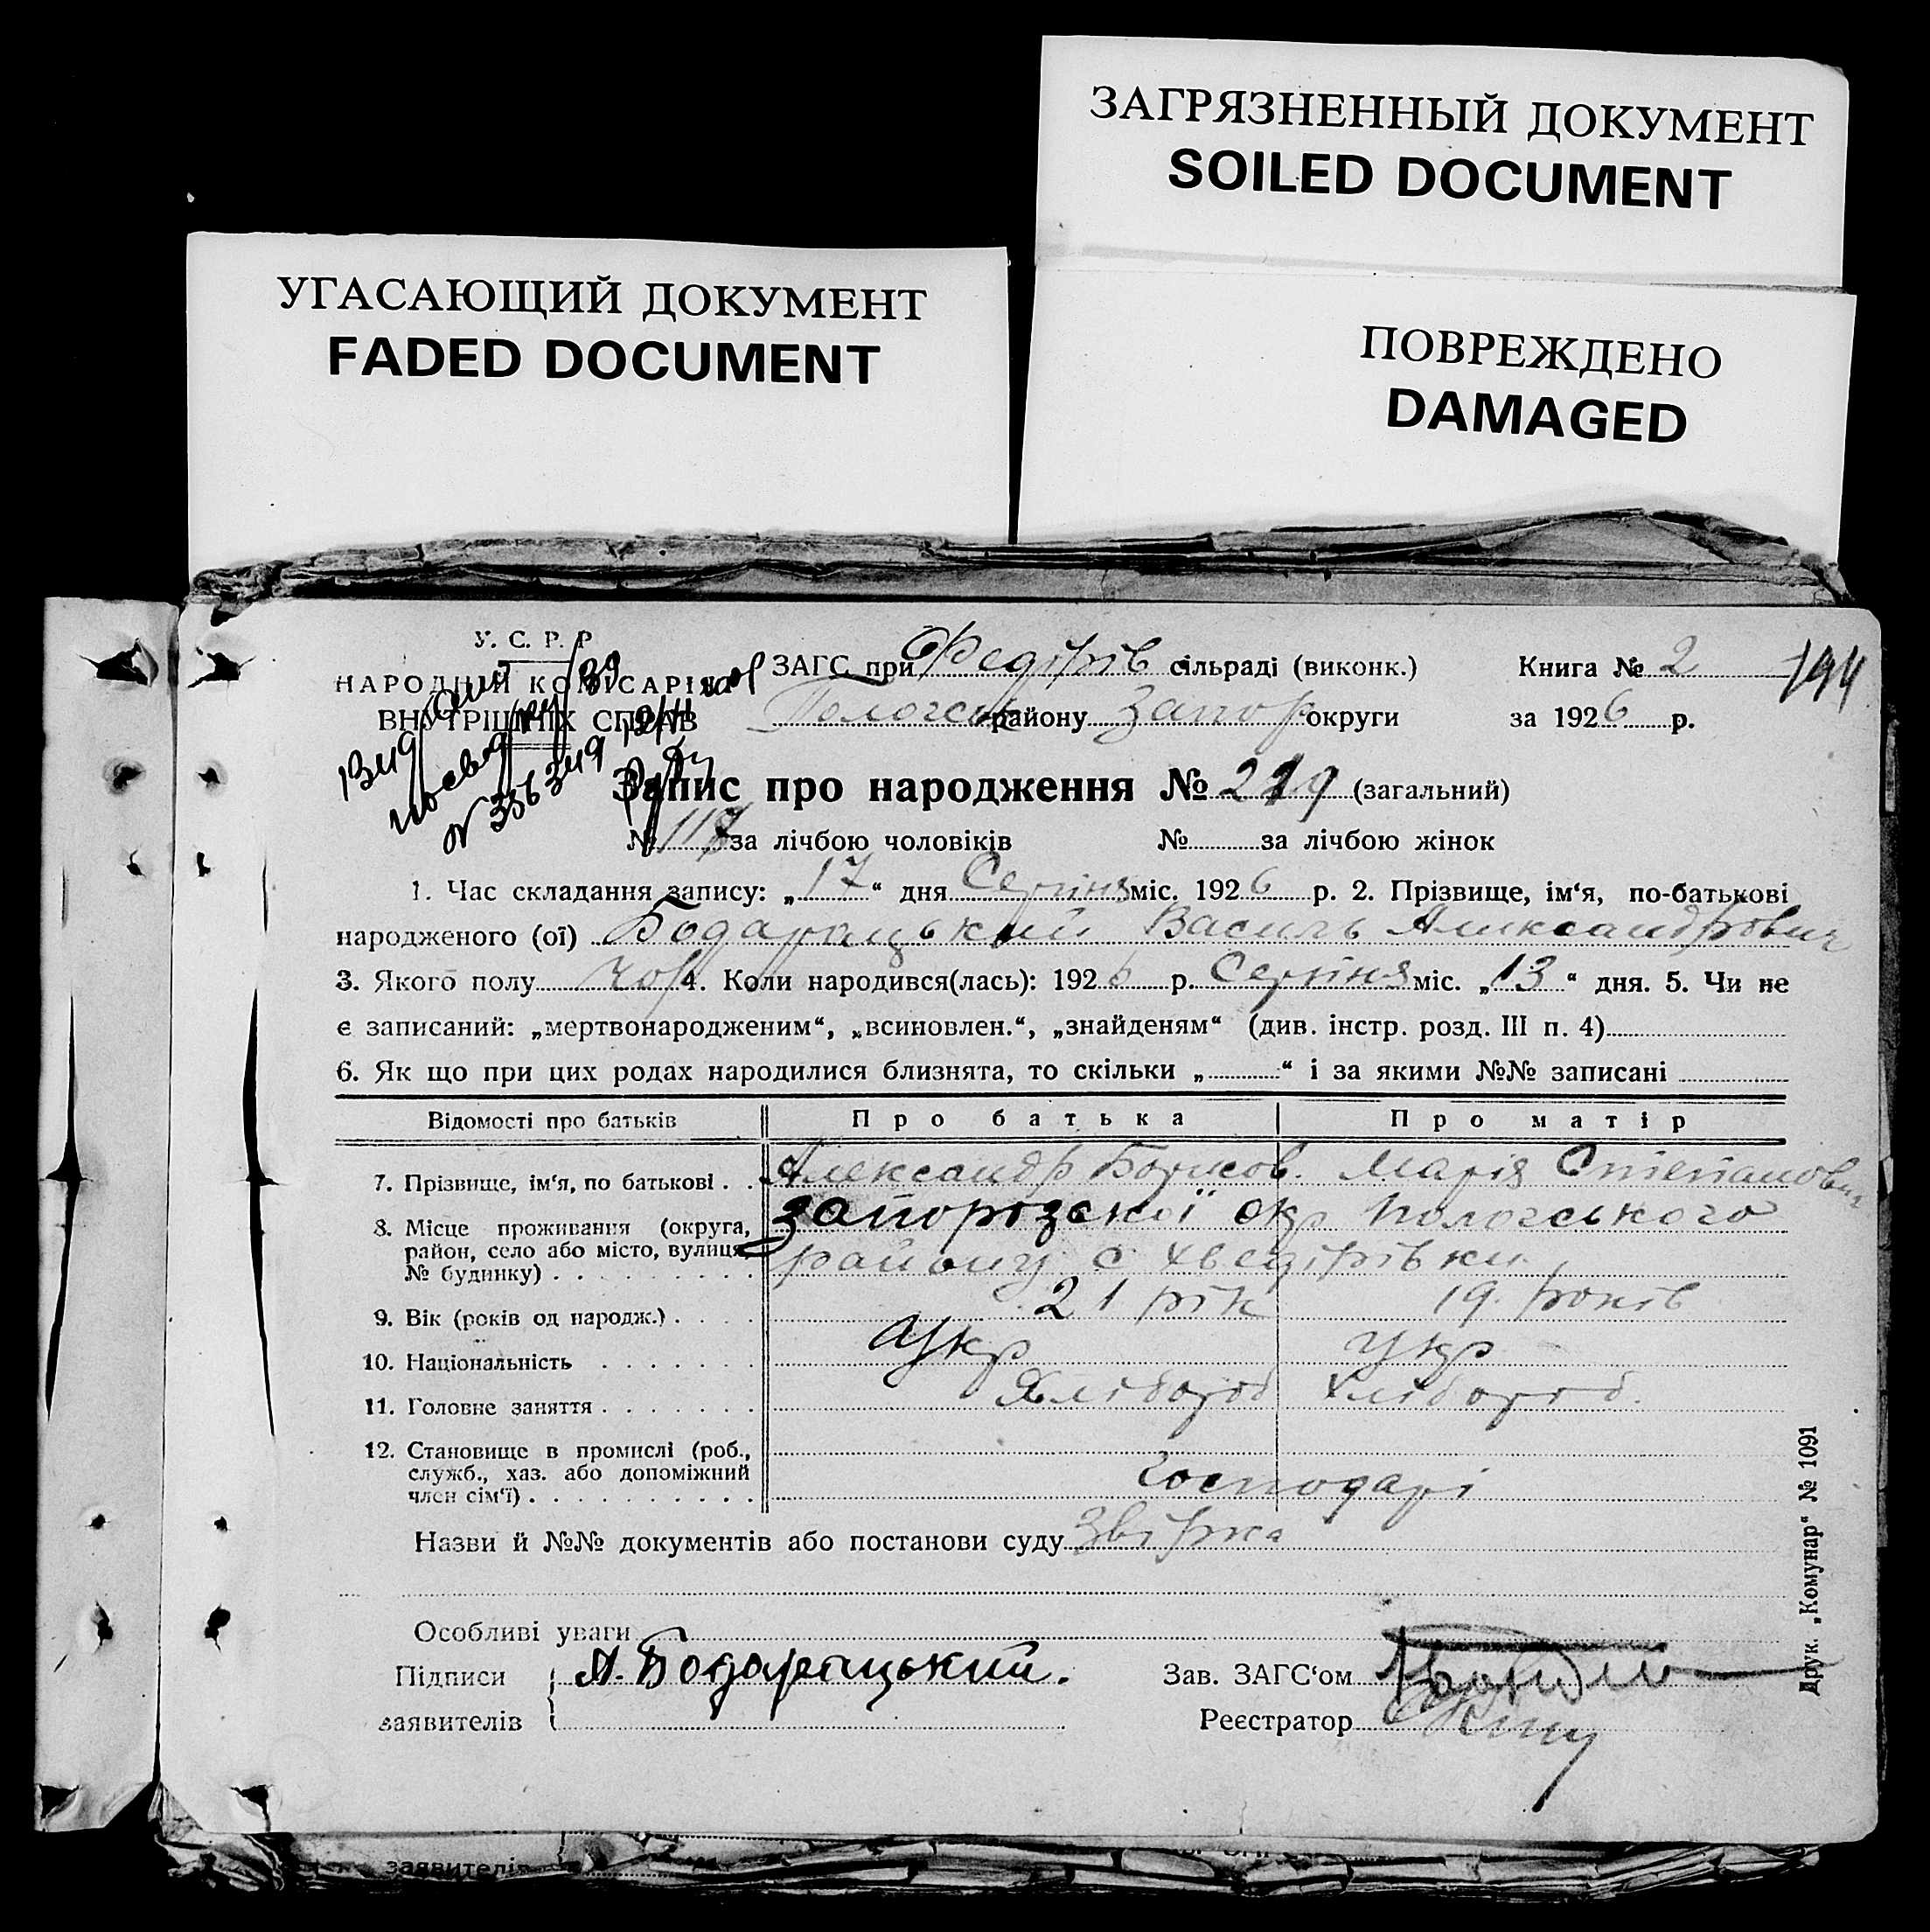 ЗАГРЯЗНЕННЫЙ ДОКУМЕНТ
SOILED DOCUMENT
УГАСАЮЩИЙ ДОКУМЕНТ
FADED DOCUMENT
ПОВРЕЖДЕНО
DAMAGED
194
У. С. Р. Р
НАРОДНИЙ КОМІСАРІЯТ
ВНУТРІШНІХ СПРАВ
ЗАГС при Федірів сільраді (виконк.) Книга № 2
Пологськ району Запор округи за 1926 р.
Запис про народження № 219 (загальний)
№ 117 за лічбою чоловіків № за лічбою жінок
1. Час складання запису: „17“ дня Серпня міс. 1926 р. 2. Прізвище, ім‘я, по-батькові
народженого (ої) Бодарацький Василь Александрович
3. Якого полу чол 4. Коли народився(лась): 1926 р. Серпня міс. „13“ дня. 5. Чи не
є записаний: „мертвонародженим“, „всиновлен.“, „знайденям“ (див. інстр. розд. III п. 4)
6. Як що при цих родах народилися близнята, то скільки „ “ і за якими №№ записані
Відомості про батьків Про батька Про матір
7. Прізвище, ім‘я, по батькові . . Александр Борисов. Марія Степановна
8. Місце проживання (округа, район, село або місто, вулиця, № будинку) . . . . . . . . . Запорізської окр Пологського
району с Хведірівки
9. Вік (років од народж.) . . . . 21 рік 19 років
10. Національність . . . . . . . Укр укр
11. Головне заняття . . . . . . . Хлібороб хлібороб.
12. Становище в промислі (роб., служб., хаз. або допоміжний член сім‘ї) . . . . . . . . . . Господарі
Назви й №№ документів або постанови суду Звірка
Особливі уваги
Підписи А. Бодарацький. Зав. ЗАГС‘ом
заявителів Реєстратор
Друк. „Комунар“ № 1091
заявителів